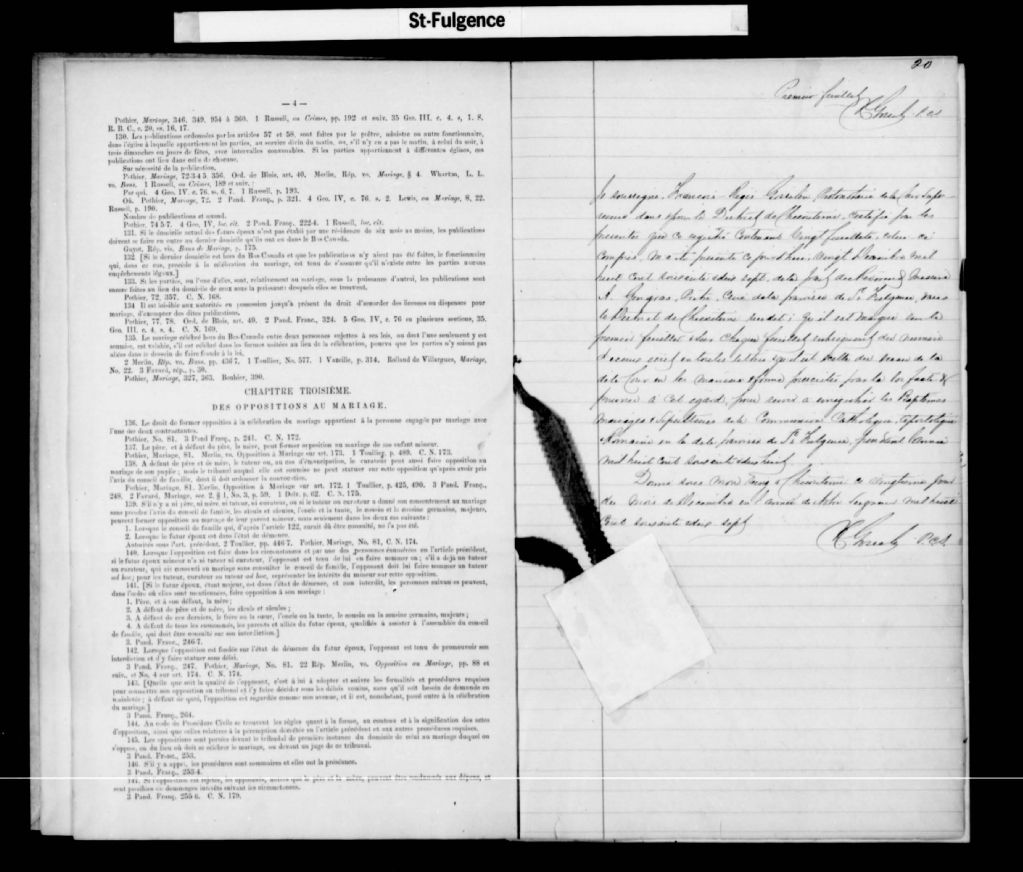 St-Fulgence
— 4 —
Pothier, Mariage, 346, 349, 954 à 360. 1 Russell, on Crimes, pp. 192 et suiv. 35 Geo. III, c. 4, s. 1. S.
R. B. C., c. 20, ss. 16, 17.
130. Les publications ordonnées par les articles 57 et 58, sont faites par le prêtre, ministre ou autre fonctionnaire,
dans l'église à laquelle appartiennent les parties, au service divin du matin, ou, s'il n'y en a pas le matin, à celui du soir, à
trois dimanches ou jours de fêtes, avec intervalles convenables. Si les parties appartiennent à différentes églises, ces
publications ont lieu dans celle de chacune.
Sur nécessité de la publication.
Pothier, Mariage, 72-3-4-5 356. Ord. de Blois, art. 40. Merlin, Rép. vo. Mariage, § 4. Wharton, L. L.
vo. Bans. 1 Russell, on Crimes, 189 et suiv.
Par qui. 4 Geo. IV, c. 76, s. 6, 7. 1 Russell, p. 193.
Où. Pothier, Mariage, 72. 2 Pand. Franç., p. 321. 4 Geo. IV, c. 76, s. 2. Lewis, on Mariage, 8, 22.
Russell, p. 190.
Nombre de publications et quand.
Pothier, 74-5-7. 4 Geo. IV, loc. cit. 2 Pand. Franç. 222-4. 1 Russell, loc. cit.
131. Si le domicile actuel des futurs époux n'est pas établi par une résidence de six mois au moins, les publications
doivent se faire en outre au dernier domicile qu'ils ont eu dans le Bas-Canada.
Guyot, Rép. vis. Bans de Mariage, p. 175.
132. [Si le dernier domicile est hors du Bas-Canada et que les publications n'y aient pas été faites, le fonctionnaire
qui, dans ce cas, procède à la célébration du mariage, est tenu de s'assurer qu'il n'existe entre les parties aucuns
empêchements légaux.]
133. Si les parties, ou l'une d'elles, sont, relativement au mariage, sous la puissance d'autrui, les publications sont
encore faites au lieu du domicile de ceux sous la puissance desquels elles se trouvent.
Pothier, 72, 357. C. N. 168.
134. Il est loisible aux autorités en possession jusqu'à présent du droit d'accorder des licences ou dispenses pour
mariage, d'exempter des dites publications.
Pothier, 77, 78. Ord. de Blois, art. 40. 2 Pand. Franç., 324. 5 Geo. IV, c. 76 en plusieurs sections, 35.
Geo. III, c. 4, s. 4. C. N. 169.
135. Le mariage célébré hors du Bas-Canada entre deux personnes sujettes à ses lois, ou dont l'une seulement y est
soumise, est valable, s'il est célébré dans les formes usitées au lieu de la célébration, pourvu que les parties n'y soient pas
allées dans le dessein de faire fraude à la loi.
2 Merlin, Rép. vo. Bans, pp. 436-7. 1 Toullier, No. 577. 1 Vazeille, p. 314. Rolland de Villargues, Mariage,
No. 22. 3 Favard, rép., p. 59.
Pothier, Mariage, 327, 363. Bouhier, 390.
CHAPITRE TROISIÈME.
DES OPPOSITIONS AU MARIAGE.
136. Le droit de former opposition à la célébration du mariage appartient à la personne engagée par mariage avec
l'une des deux contractantes.
Pothier, No. 81. 3 Pand Franç., p. 241. C. N. 172.
137. Le père, et à défaut du père, la mère, peut former opposition au mariage de son enfant mineur.
Pothier, Mariage, 81. Merlin, vo. Opposition à Mariage sur art. 173. 1 Toullier, p. 489. C. N. 173.
138. A défaut de père et de mère, le tuteur ou, au cas d'émancipation, le curateur peut aussi faire opposition au
mariage de son pupille; mais le tribunal auquel elle est soumise ne peut statuer sur cette opposition qu'après avoir pris
l'avis du conseil de famille, dont il doit ordonner la convocation.
Pothier, Mariage, 81. Merlin, Opposition à Mariage sur art. 172. 1 Toullier, p. 425, 490. 3 Pand. Franç.,
248. 2 Favard, Mariage, sec. 2, § 1, No. 3, p. 59. 1 Delv. p. 62. C. N. 175.
139. S'il n'y a ni père, ni mère, ni tuteur, ni curateur, ou si le tuteur ou curateur a donné son consentement au mariage
sans prendre l'avis du conseil de famille, les aïeuls et aïeules, l'oncle et la tante, le cousin et la cousine germains, majeurs,
peuvent former opposition au mariage de leur parent mineur, mais seulement dans les deux cas suivants:
1. Lorsque le conseil de famille qui, d'après l'article 122, aurait dû être consulté, ne l'a pas été.
2. Lorsque le futur époux est dans l'état de démence.
Autorités sous l'art. précédent. 2 Toullier, pp. 446-7. Pothier, Mariage, No. 81, C. N. 174.
140. Lorsque l'opposition est faite dans les circonstances et par une des personnes énumérées en l'article précédent,
si le futur époux mineur n'a ni tuteur ni curateur, l'opposant est tenu de lui en faire nommer un; s'il a déjà un tuteur
ou curateur, qui ait consenti au mariage sans consulter le conseil de famille, l'opposant doit lui faire nommer un tuteur
ad hoc; pour les tuteur, curateur ou tuteur ad hoc, représenter les intérêts du mineur sur cette opposition.
141. [Si le futur époux, étant majeur, est dans l'état de démence, et non interdit, les personnes suivantes peuvent,
dans l'ordre où elles sont mentionnées, faire opposition à son mariage:
1. Père, et à son défaut, la mère;
2. A défaut de père et de mère, les aïeuls et aïeules;
3. A défaut de ces derniers, le frère ou la sœur, l'oncle ou la tante, le cousin ou la cousine germains, majeurs;
4. A défaut de tous les susnommés, les parents et alliés du futur époux, qualifiés à assister à l'assemblée du conseil
de famille, qui doit être consulté sur son interdiction.]
3. Pand. Franç., 246-7.
142. Lorsque l'opposition est fondée sur l'état de démence du futur époux, l'opposant est tenu de promouvoir son
interdiction et d'y faire statuer sans délai.
3 Pand. Franç., 247. Pothier, Mariage, No. 81. 22 Rép. Merlin, vo. Opposition au Mariage, pp. 88 et
suiv., et No. 4 sur art. 174. C. N. 174.
143. [Quelle que soit la qualité de l'opposant, c'est à lui à adopter et suivre les formalités et procédures requises
pour soumettre son opposition au tribunal et l'y faire décider sous les délais voulus, sans qu'il soit besoin de demande en
mainlevée; à défaut de quoi, l'opposition est regardée comme non avenue, et il est, nonobstant, passé outre à la célébration
du mariage.]
3 Pand. Franç., 264.
144. Au code de Procédure Civile se trouvent les règles quant à la forme, au contenu et à la signification des actes
d'opposition, ainsi que celles relatives à la péremption décrétée en l'article précédent et aux autres procédures requises.
145. Les oppositions sont portées devant le tribunal de première instance du domicile de celui au mariage duquel on
s'oppose, ou du lieu où doit se célébrer le mariage, ou devant un juge de ce tribunal.
3 Pand. Franç., 253.
146. S'il y a appel, les procédures sont sommaires et elles ont la préséance.
3 Pand. Franç., 253-4.
147. Si l'opposition est rejetée, les opposants, autres que le père et la mère, peuvent être condamnés aux dépens, et
sont passibles de dommages intérêts suivant les circonstances.
3 Pand. Franç. 255-6. C. N. 179.
20
Premier feuillet
Je soussigné, François Régis Gosselin Protonotaire de la Cour Supérieure
dans & pour le District de Chicoutimi, Certifie par les
présentes que ce registre Contenant Vingt feuillets, celui ci
Compris, m'a été présenté ce jourd'hui, Vingt Décembre mil
huit Cent soixante & dix sept, de la part du Révérend Messire
A. Gingras, Prêtre, Curé de la paroisse de St Fulgence, dans
le District de Chicoutimi susdit; Qu'il est marqué sur le
premier feuillet & sur chaque feuillet subséquent du numéro
d'icelui écrit en toutes lettres & qu'il est scellé du sceau de la
dite Cour en la manière & forme prescrites par la loi faite &
pourvue à cet égard, pour servir à enregistrer les Baptêmes
mariages & Sépultures de la Communion Catholique, Apostolique
& Romaine en la dite paroisse de St Fulgence, pendant l'année
mil huit Cent soixante & dix huit.
Donné sous mon Seing à Chicoutimi ce Vingtième jour
du mois de Décembre en l'année de Notre Seigneur mil huit
Cent soixante & dix sept